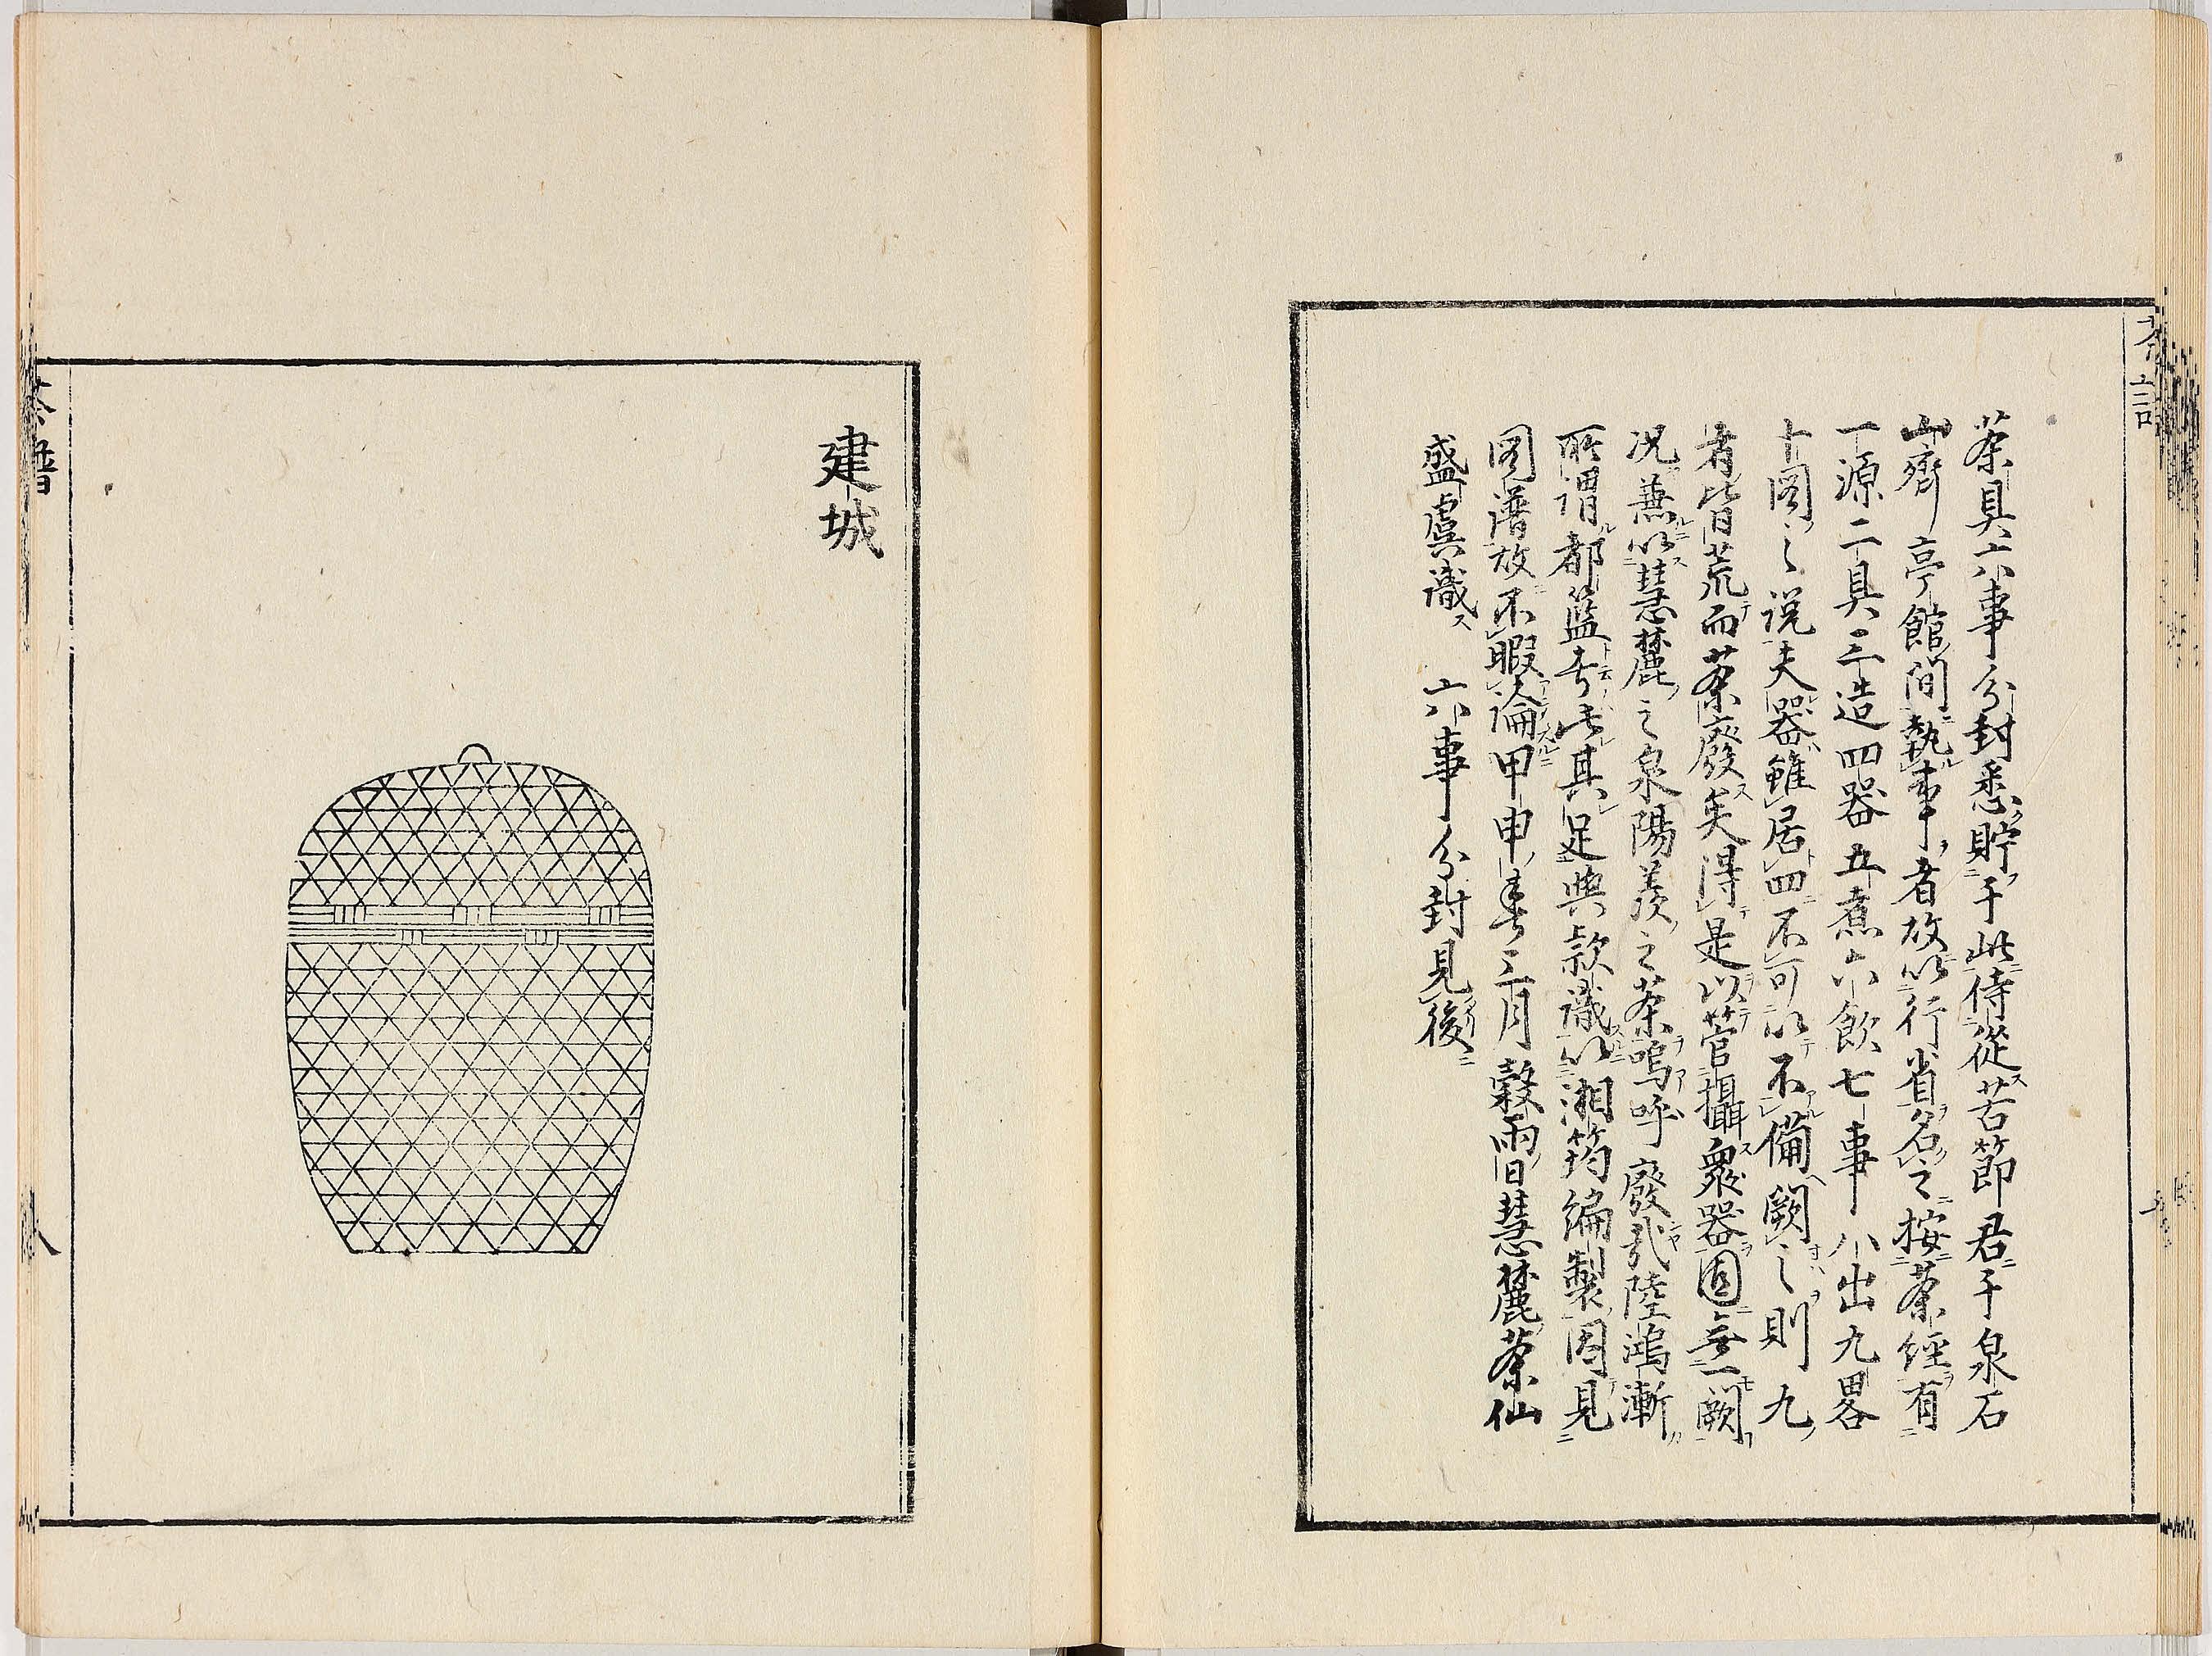 茶具六事分封悉貯于此侍從苦節君于泉石
山齋亭館間執事者故以行省名之按茶經有
一源二具三造四器五煮六飲七事八出九畧
十圖之説夫器雖居四不可以不備闕之則九
者皆荒而茶廢矣得是以管攝衆器固無一闕
况兼以慧麓之泉陽羨之茶嗚呼廢哉陸鴻漸
所謂都籃者此其足與欵識以湘筠編製因見
圖譜故不暇論甲申春三月穀雨日慧麓茶仙
盛虞識 六事分封見後
建城
茶譜
八